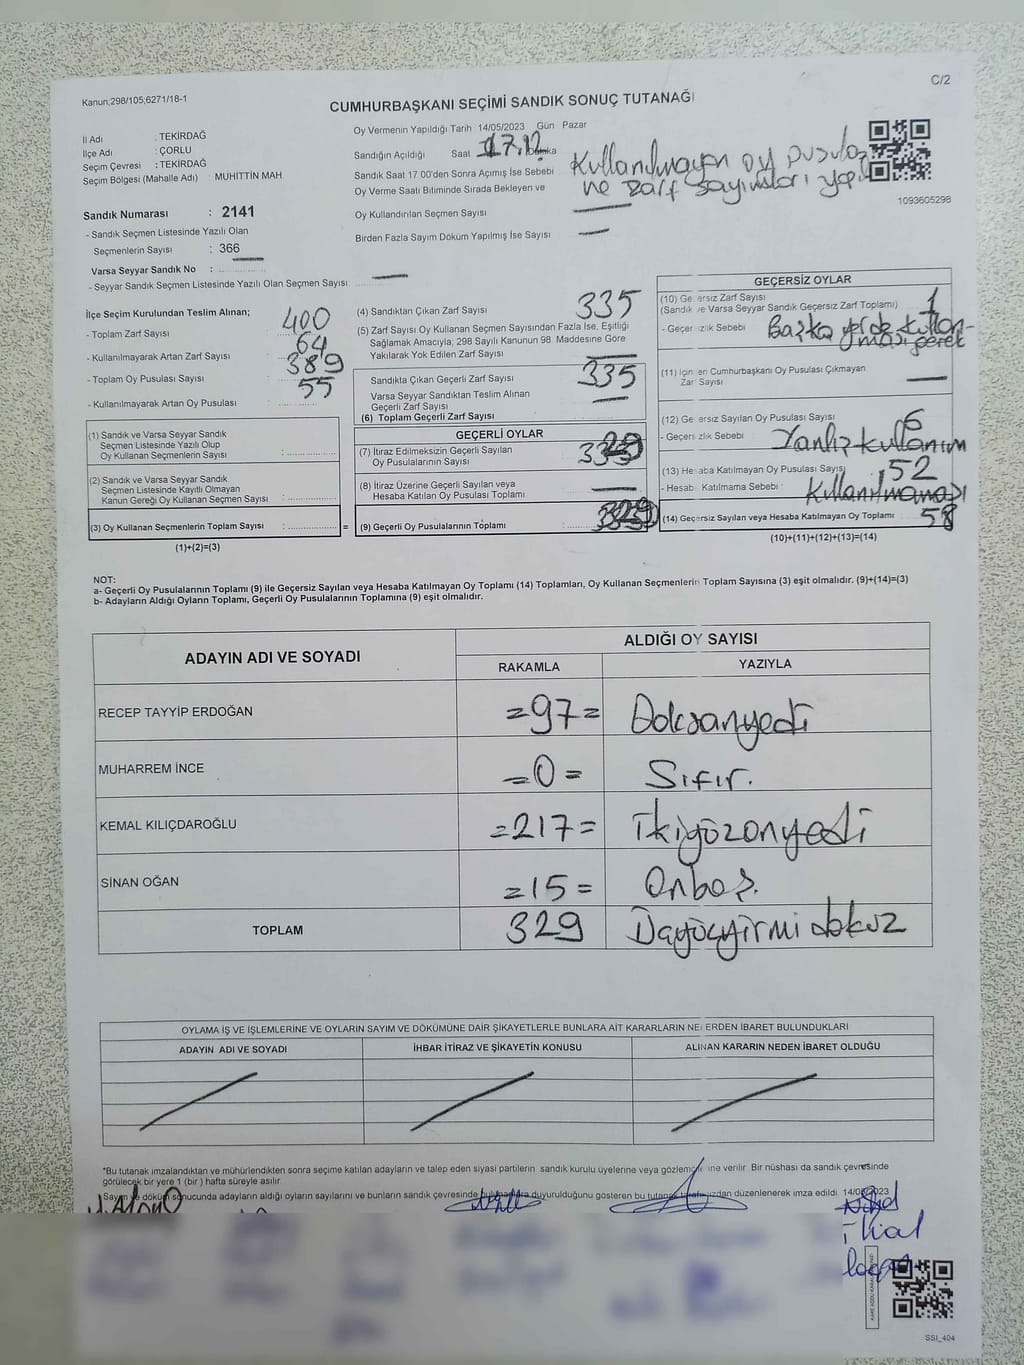 C/2
Kanun;298/105;6271/18-1
CUMHURBAŞKANI SEÇİMİ SANDIK SONUÇ TUTANAĞI
İl Adı : TEKİRDAĞ
İlçe Adı : ÇORLU
Seçim Çevresi : TEKİRDAĞ
Seçim Bölgesi (Mahalle Adı) : MUHİTTİN MAH
Sandık Numarası : 2141
- Sandık Seçmen Listesinde Yazılı Olan
Seçmenlerin Sayısı : 366
Varsa Seyyar Sandık No :
- Seyyar Sandık Seçmen Listesinde Yazılı Olan Seçmen Sayısı
Oy Vermenin Yapıldığı Tarih 14/05/2023 Gün Pazar
Sandığın Açıldığı Saat 17.12
Sandık Saat 17 00'den Sonra Açımış İse Sebebi
Kullanılmayan oy pusulası
ne zarf sayımları
Oy Verme Saati Bitiminde Sırada Bekleyen ve
Oy Kullandırılan Seçmen Sayısı
Birden Fazla Sayım Döküm Yapılmış İse Sayısı
1093605298
İlçe Seçim Kurulundan Teslim Alınan;
- Toplam Zarf Sayısı : 400
- Kullanılmayarak Artan Zarf Sayısı : 64
- Toplam Oy Pusulası Sayısı : 389
- Kullanılmayarak Artan Oy Pusulası : 55
(1) Sandık ve Varsa Seyyar Sandık
Seçmen Listesinde Yazılı Olup
Oy Kullanan Seçmenlerin Sayısı :
(2) Sandık ve Varsa Seyyar Sandık
Seçmen Listesinde Kayıtlı Olmayan
Kanun Gereği Oy Kullanan Seçmen Sayısı :
(3) Oy Kullanan Seçmenlerin Toplam Sayısı : =
(1)+(2)=(3)
(4) Sandıktan Çıkan Zarf Sayısı 335
(5) Zarf Sayısı Oy Kullanan Seçmen Sayısından Fazla İse, Eşitliği
Sağlamak Amacıyla, 298 Sayılı Kanunun 98 Maddesine Göre
Yakılarak Yok Edilen Zarf Sayısı
Sandıkta Çıkan Geçerli Zarf Sayısı 335
Varsa Seyyar Sandıktan Teslim Alınan
Geçerli Zarf Sayısı
(6) Toplam Geçerli Zarf Sayısı
GEÇERLİ OYLAR
(7) İtiraz Edilmeksizin Geçerli Sayılan
Oy Pusulalarının Sayısı
(8) İtiraz Üzerine Geçerli Sayılan veya
Hesaba Katılan Oy Pusulası Toplamı
(9) Geçerli Oy Pusulalarının Toplamı : 329
GEÇERSİZ OYLAR
(10) Geçersiz Zarf Sayısı
(Sandık ve Varsa Seyyar Sandık Geçersiz Zarf Toplamı) 1
- Geçersizlik Sebebi Başka yerde kullan-
ması gerek
(11) İçinden Cumhurbaşkanı Oy Pusulası Çıkmayan
Zarf Sayısı
(12) Geçersiz Sayılan Oy Pusulası Sayısı 6
- Geçersizlik Sebebi Yanlış kullanım
(13) Hesaba Katılmayan Oy Pusulası Sayısı 52
- Hesaba Katılmama Sebebi :
(14) Geçersiz Sayılan veya Hesaba Katılmayan Oy Toplamı 58
(10)+(11)+(12)+(13)=(14)
NOT:
a- Geçerli Oy Pusulalarının Toplamı (9) ile Geçersiz Sayılan veya Hesaba Katılmayan Oy Toplamı (14) Toplamları, Oy Kullanan Seçmenlerin Toplam Sayısına (3) eşit olmalıdır. (9)+(14)=(3)
b- Adayların Aldığı Oyların Toplamı, Geçerli Oy Pusulalarının Toplamına (9) eşit olmalıdır.
ADAYIN ADI VE SOYADI ALDIĞI OY SAYISI
RAKAMLA YAZIYLA
RECEP TAYYİP ERDOĞAN =97= Doksanyedi
MUHARREM İNCE =0= Sıfır.
KEMAL KILIÇDAROĞLU =217= İkiyüzonyedi
SİNAN OĞAN =15= Onbeş.
TOPLAM 329
OYLAMA İŞ VE İŞLEMLERİNE VE OYLARIN SAYIM VE DÖKÜMÜNE DAİR ŞİKAYETLERLE BUNLARA AİT KARARLARIN NELERDEN İBARET BULUNDUKLARI
ADAYIN ADI VE SOYADI İHBAR İTİRAZ VE ŞİKAYETİN KONUSU ALINAN KARARIN NEDEN İBARET OLDUĞU
*Bu tutanak imzalandıktan ve mühürlendikten sonra seçime katılan adayların ve talep eden siyasi partilerin sandık kurulu üyelerine veya gözlemcilerine verilir Bir nüshası da sandık çevresinde
görülecek bir yere 1 (bir ) hafta süreyle asılır
Sayım ve döküm sonucunda adayların aldığı oyların sayılarını ve bunların sandık çevresinde bulunanlara duyurulduğunu gösteren bu tutanak tarafımızdan düzenlenerek imza edildi 14/05/2023
SSI_404